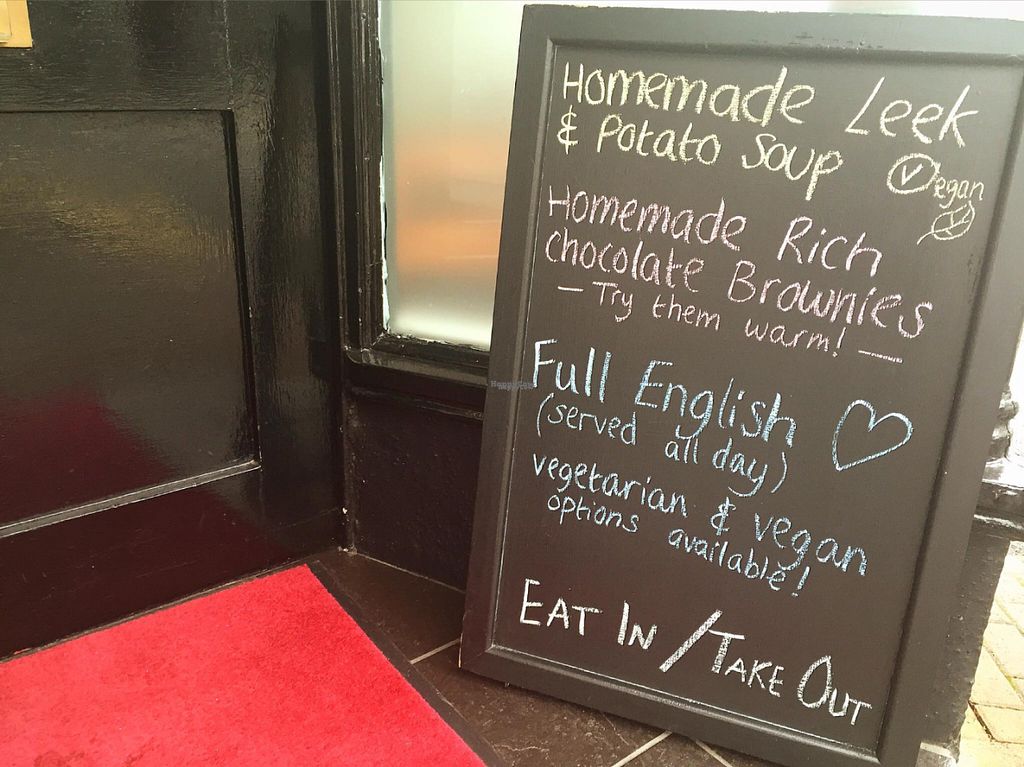 Homemade Leek
& Potato Soup
Vegan
Homemade Rich
Chocolate Brownies
— Try them warm! —
Full English
(served all day)
vegetarian & vegan
options available!
EAT IN / TAKE OUT
HappyCow